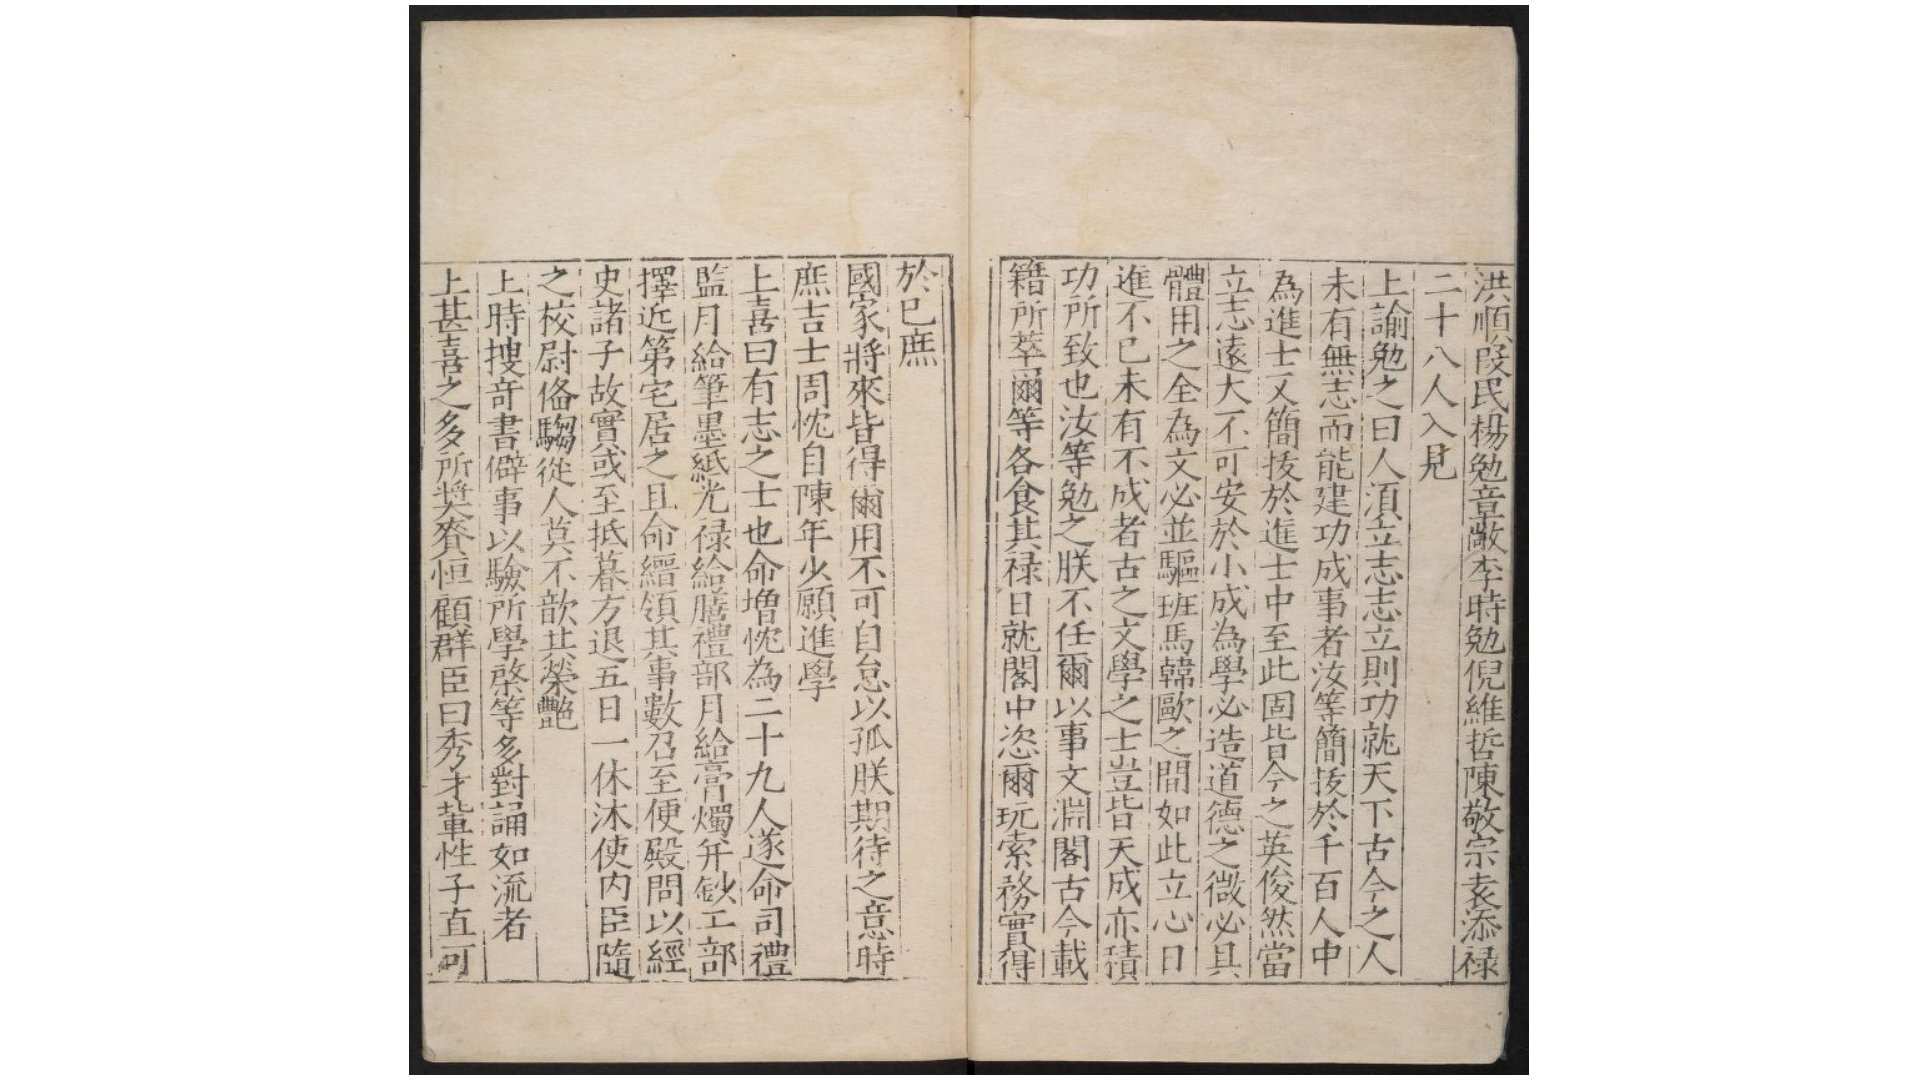 洪順段民楊勉章敞李時勉倪維哲陳敬宗袁添祿
二十八人入見
上諭勉之曰人湏立志志立則功就天下古今之人
未有無志而能建功成事者汝等簡拔於千百人中
為進士又簡拔於進士中至此固皆今之英俊然當
立志遠大不可安於小成為學必造道德之微必具
體用之全為文必並驅班馬韓歐之間如此立心日
進不已未有不成者古之文學之士豈皆天成亦積
功所致也汝等勉之朕不任爾以事文淵閣古今載
籍所萃爾等各食其祿日就閣中恣爾玩索務實得
於已庶
國家將來皆得爾用不可自怠以孤朕期待之意時
庶吉士周忱自陳年少願進學
上喜曰有志之士也命增忱為二十九人遂命司禮
監月給筆墨紙光祿給膳禮部月給膏燭并鈔工部
擇近第宅居之且命縉領其事數召至便殿問以經
史諸子故實或至抵暮方退五日一休沐使内臣隨
之校尉俻騶從人莫不歆其榮艷
上時搜奇書僻事以驗所學棨等多對誦如流者
上甚喜之多所奨賚恒顧群臣曰秀才輩性子直可